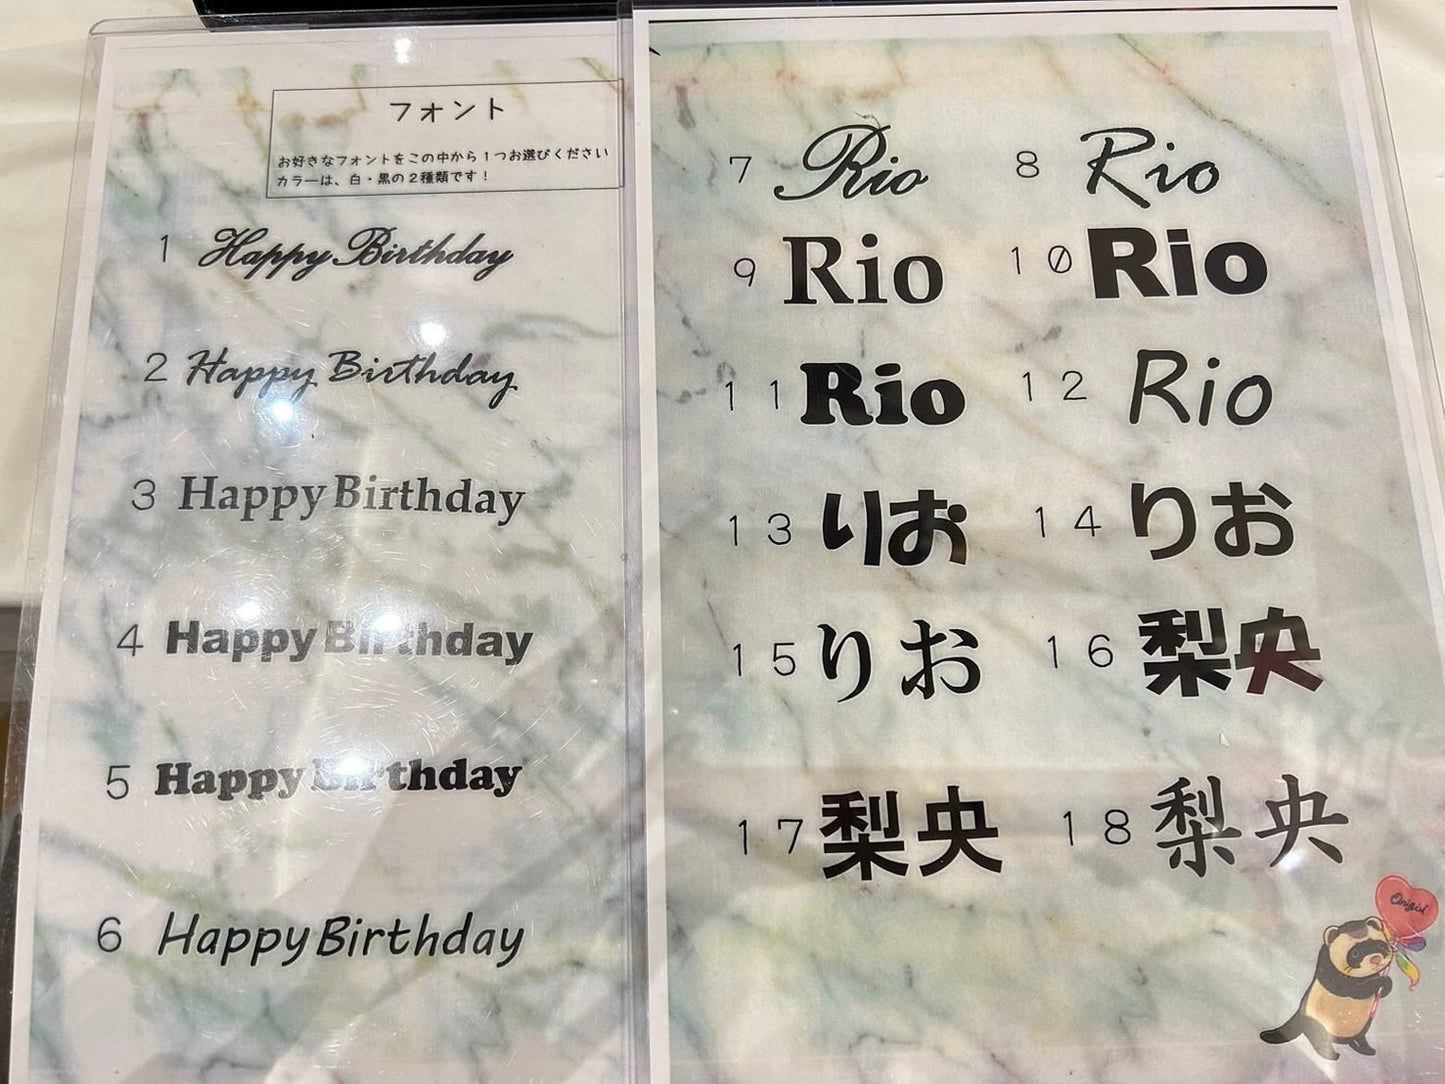 フォント
お好きなフォントをこの中から１つお選びください
カラーは、白・黒の２種類です！
1 Happy Birthday
2 Happy Birthday
3 Happy Birthday
4 Happy Birthday
5 Happy Birthday
6 Happy Birthday
7 Rio 8 Rio
9 Rio 10 Rio
11 Rio 12 Rio
13 りお 14 りお
15 りお 16 梨央
17 梨央 18 梨央